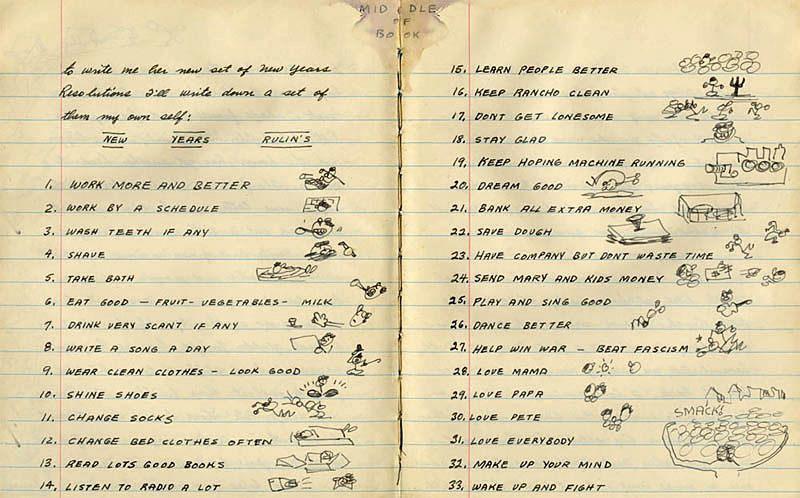 MIDDLE
OF
BOOK
to write me her new set of New Years
Resolutions I'll write down a set of
them my own self:
NEW YEARS RULIN'S
1. WORK MORE AND BETTER
2. WORK BY A SCHEDULE
3. WASH TEETH IF ANY
4. SHAVE
5. TAKE BATH
6. EAT GOOD — FRUIT - VEGETABLES - MILK
7. DRINK VERY SCANT IF ANY
8. WRITE A SONG A DAY
9. WEAR CLEAN CLOTHES — LOOK GOOD
10. SHINE SHOES
11. CHANGE SOCKS
12. CHANGE BED CLOTHES OFTEN
13. READ LOTS GOOD BOOKS
14. LISTEN TO RADIO A LOT
15. LEARN PEOPLE BETTER
16. KEEP RANCHO CLEAN
17. DONT GET LONESOME
18. STAY GLAD
19. KEEP HOPING MACHINE RUNNING
20. DREAM GOOD
21. BANK ALL EXTRA MONEY
22. SAVE DOUGH
23. HAVE COMPANY BUT DONT WASTE TIME
24. SEND MARY AND KIDS MONEY
25. PLAY AND SING GOOD
26. DANCE BETTER
27. HELP WIN WAR — BEAT FASCISM
28. LOVE MAMA
29. LOVE PAPA
30. LOVE PETE
SMACK!
31. LOVE EVERYBODY
32. MAKE UP YOUR MIND
33. WAKE UP AND FIGHT